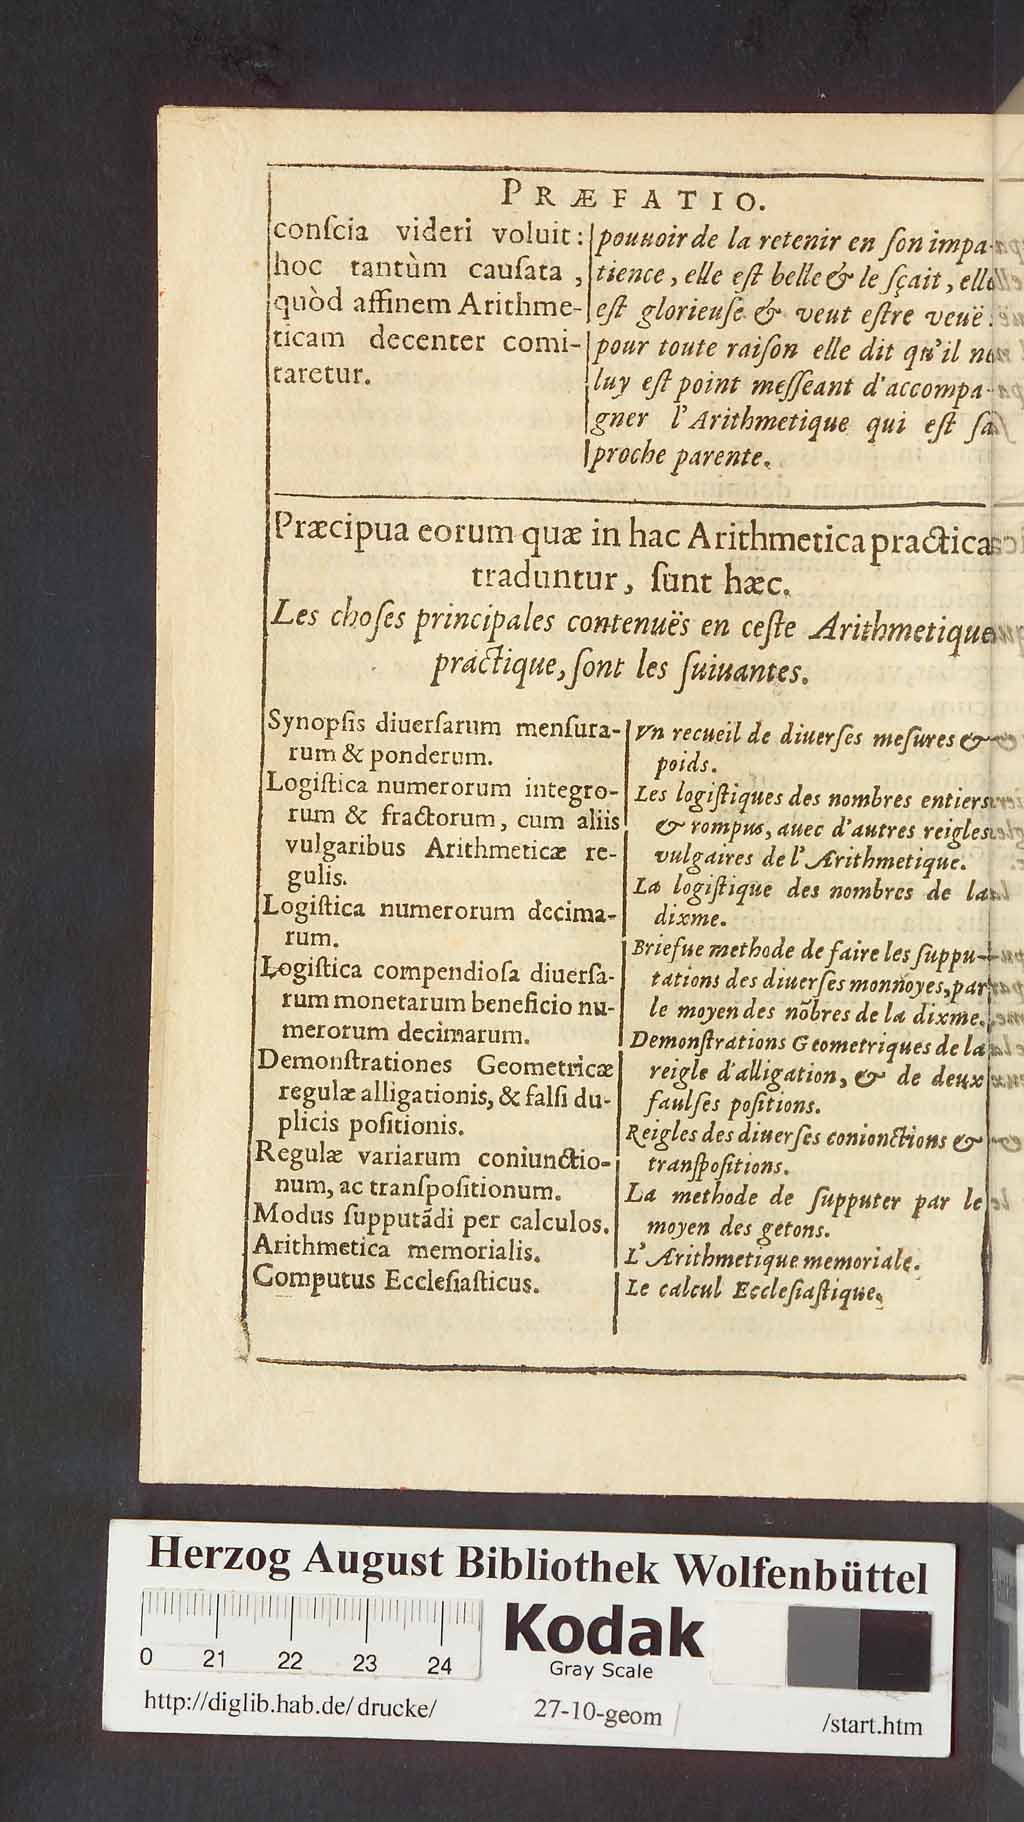 PRÆFATIO.
conſcia videri voluit:
hoc tantùm cauſata,
quòd affinem Arithme-
ticam decenter comi-
taretur.
pouuoir de la retenir en ſon impa-
tience, elle eſt belle & le ſçait, elle
eſt glorieuſe & veut eſtre veuë:
pour toute raiſon elle dit qu'il ne
luy eſt point meſſeant d'accompa-
gner l'Arithmetique qui eſt ſa
proche parente.
Præcipua eorum quæ in hac Arithmetica practica
traduntur, ſunt hæc.
Les choſes principales contenuës en ceſte Arithmetique
practique, ſont les ſuiuantes.
Synopſis diuerſarum menſura-
rum & ponderum.
Logiſtica numerorum integro-
rum & fractorum, cum aliis
vulgaribus Arithmeticæ re-
gulis.
Logiſtica numerorum decima-
rum.
Logiſtica compendioſa diuerſa-
rum monetarum beneficio nu-
merorum decimarum.
Demonſtrationes Geometricæ
regulæ alligationis, & falſi du-
plicis poſitionis.
Regulæ variarum coniunctio-
num, ac tranſpoſitionum.
Modus ſupputādi per calculos.
Arithmetica memorialis.
Computus Eccleſiaſticus.
Vn recueil de diuerſes meſures &
poids.
Les logiſtiques des nombres entiers
& rompus, auec d'autres reigles
vulgaires de l'Arithmetique.
La logiſtique des nombres de la
dixme.
Briefue methode de faire les ſuppu-
tations des diuerſes monnoyes, par
le moyen des nōbres de la dixme.
Demonſtrations Geometriques de la
reigle d'alligation, & de deux
faulſes poſitions.
Reigles des diuerſes conionctions &
tranſpoſitions.
La methode de ſupputer par le
moyen des getons.
L'Arithmetique memoriale.
Le calcul Eccleſiaſtique.
Herzog August Bibliothek Wolfenbüttel
0 21 22 23 24
Kodak
Gray Scale
http://diglib.hab.de/drucke/
27-10-geom
/start.htm